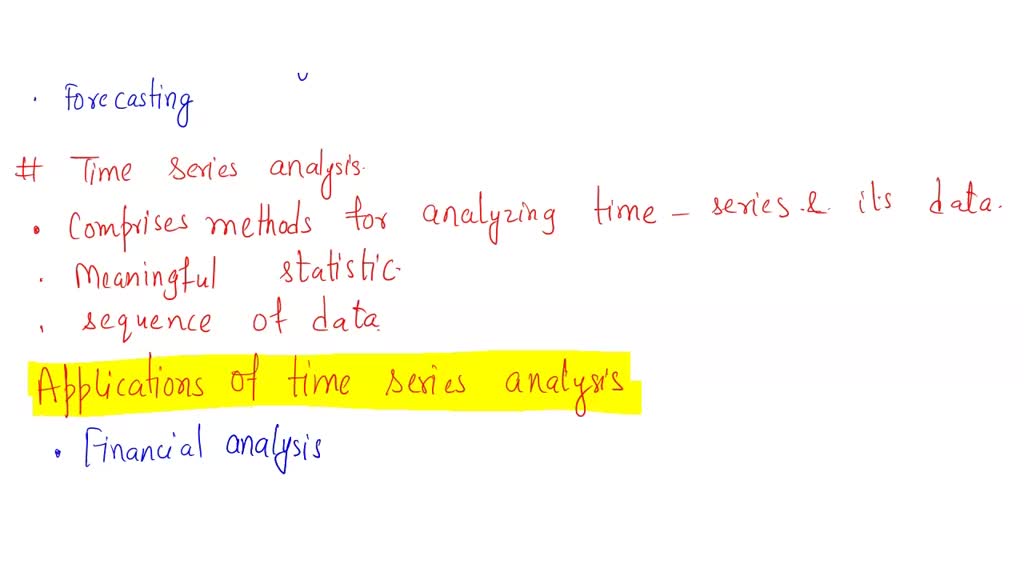 · Forecasting
# Time series analysis.
• Comprises methods for analyzing time - series & its data.
· Meaningful statistic.
· sequence of data.
Applications of time series analysis
• Financial analysis